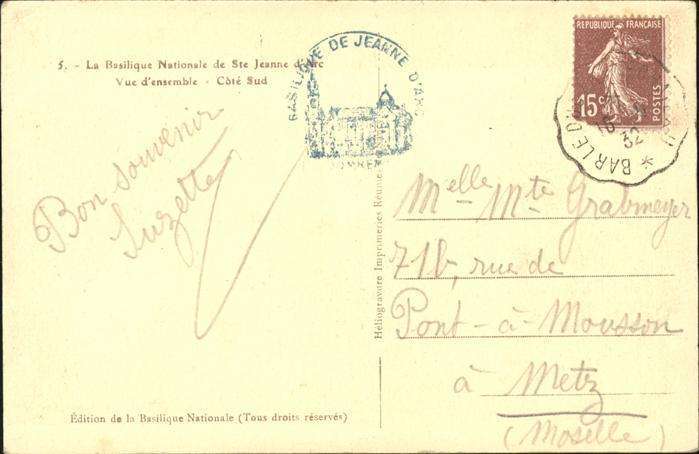 5. - La Basilique Nationale de Ste Jeanne d'Arc
Vue d'ensemble - Côté Sud
BASILIQUE DE JEANNE D'ARC
Bon souvenir
Suzette
Édition de la Basilique Nationale (Tous droits réservés)
Héliogravure Imprimeries Réunies
REPUBLIQUE FRANÇAISE
15c
POSTES
BAR LE D
32
Melle Mte Grabmeyer
71b, rue de
Pont-à-Mousson
à Metz
(Moselle)